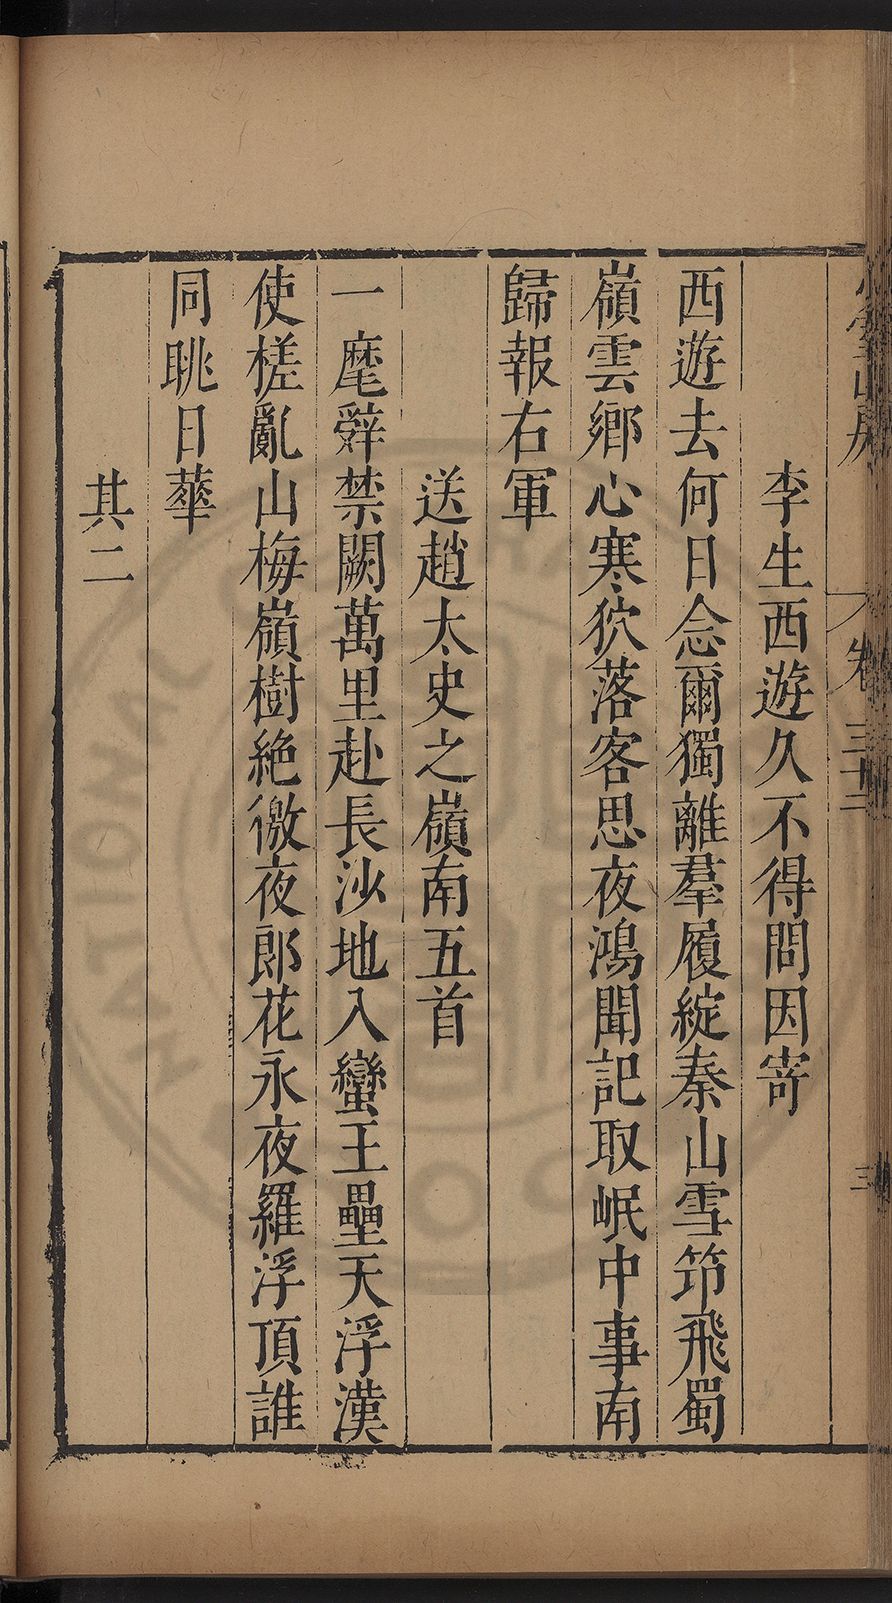 李生西遊久不得問因寄
西遊去何日念爾獨離羣履綻秦山雪笻飛蜀
嶺雲鄉心寒狖落客思夜鴻聞記取岷中事南
歸報右軍
送趙太史之嶺南五首
一麾辤禁闕萬里赴長沙地入蠻王壘天浮漢
使槎亂山梅嶺樹絶徼夜郎花永夜羅浮頂誰
同眺日華
其二